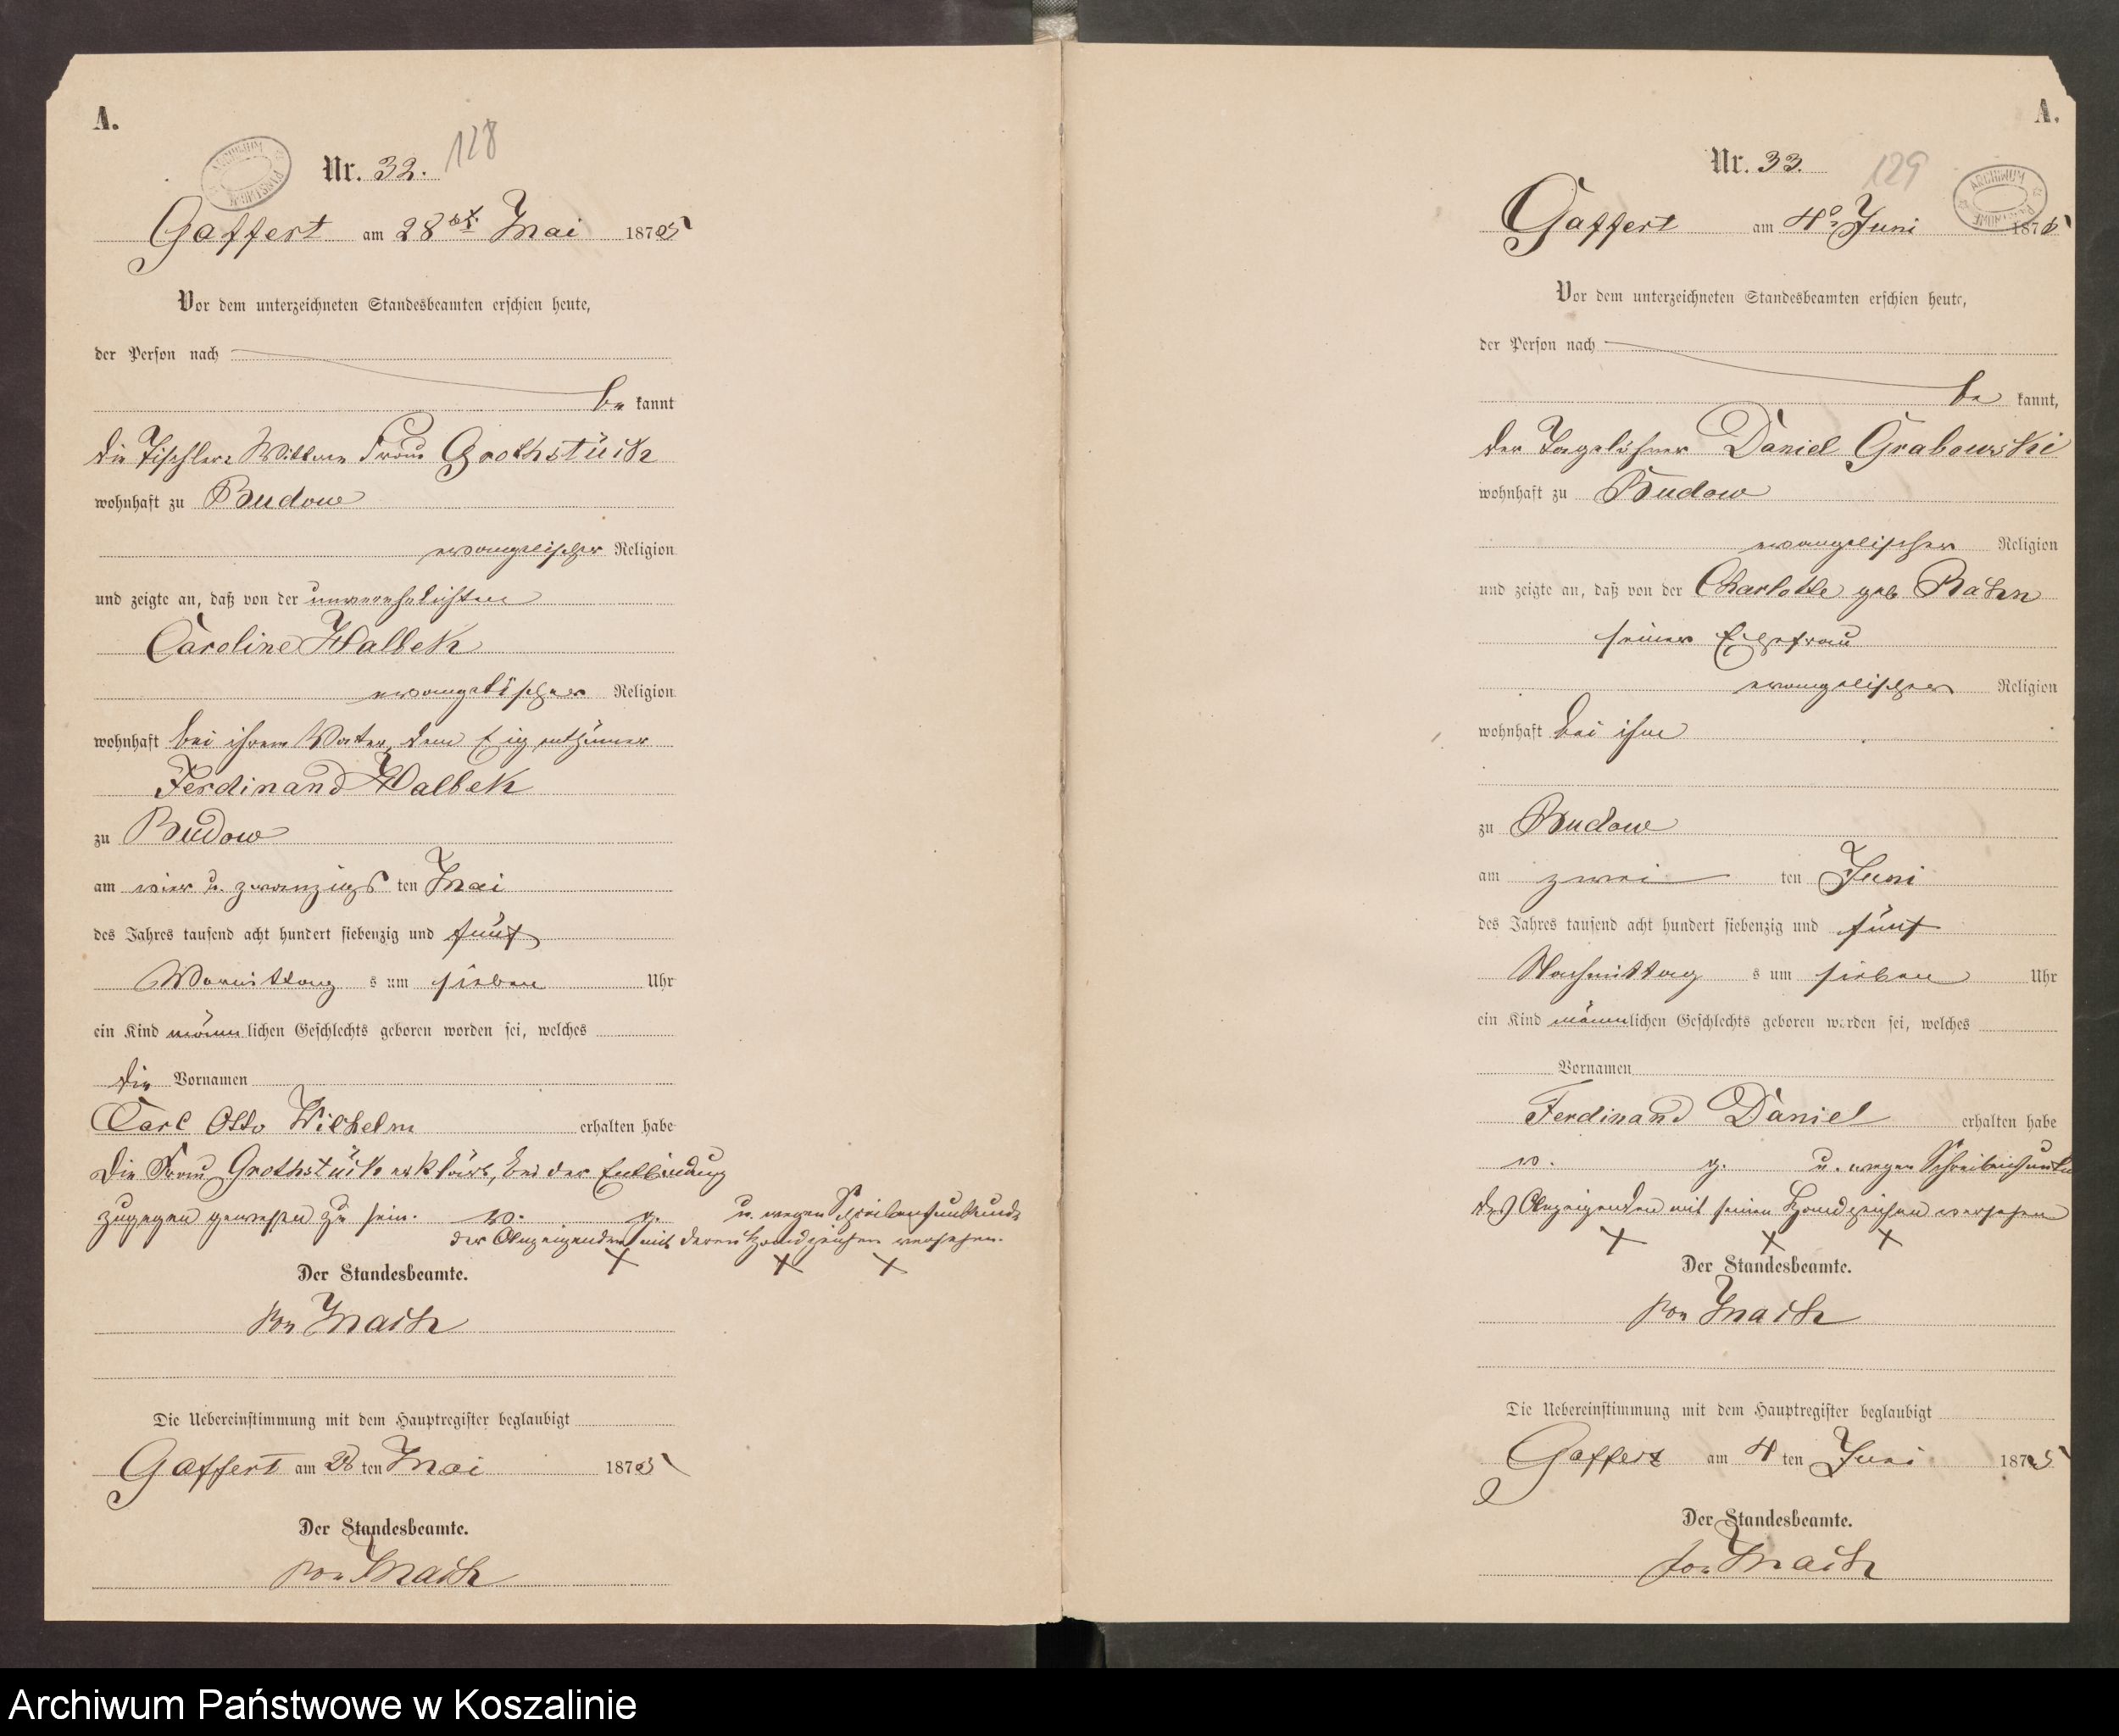 A.
128
Nr. 32.
Gaffert am 28st Mai 1875
Vor dem unterzeichneten Standesbeamten erschien heute,
der Person nach
be kannt
die Tischler Wittwe Frau Grothstück
wohnhaft zu Budow
evangelischer Religion
und zeigte an, daß von der unverehelichten
Caroline Halbek
evangelischer Religion
wohnhaft bei ihrem Vater, dem Eigenthümer
Ferdinand Halbek
zu Budow
am vier u. zwanzigs ten Mai
des Jahres tausend acht hundert siebenzig und fünf
Vormittag s um sieben Uhr
ein Kind männlichen Geschlechts geboren worden sei, welches
die Vornamen
Carl Otto Wilhelm erhalten habe
Die Frau Grothstück erklärt, bei der Entbindung
zugegen gewesen zu sein. v. g. u. wegen Schreibensunkunde
der Anzeigenden mit deren Handzeichen versehen.
X X X
Der Standesbeamte.
von Mach
Die Uebereinstimmung mit dem Hauptregister beglaubigt
Gaffert am 28 ten Mai 1875
Der Standesbeamte.
von Mach
A.
Nr. 33.
129
ARCHIWUM
Gaffert am 4ᵗ Juni 1875
Vor dem unterzeichneten Standesbeamten erschien heute,
der Person nach
be kannt,
der Tagelöhner Daniel Grabowski
wohnhaft zu Budow
evangelischer Religion
und zeigte an, daß von der Charlotte geb Rahn
seiner Ehefrau
evangelischer Religion
wohnhaft bei ihm
zu Budow
am zwei ten Juni
des Jahres tausend acht hundert siebenzig und fünf
Nachmittag s um sieben Uhr
ein Kind männlichen Geschlechts geboren worden sei, welches
Vornamen
Ferdinand Daniel erhalten habe
v. g. u. wegen Schreibensunku
des Anzeigenden mit seinen Handzeichen versehen
X X X
Der Standesbeamte.
von Mach
Die Uebereinstimmung mit dem Hauptregister beglaubigt
Gaffert am 4 ten Juni 1875
Der Standesbeamte.
von Mach
Archiwum Państwowe w Koszalinie